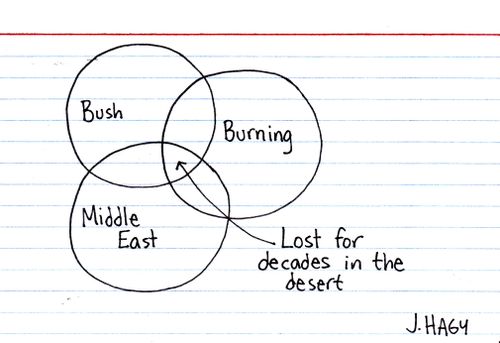 Bush
Burning
Middle
East
Lost for
decades in the
desert
J. HAGY